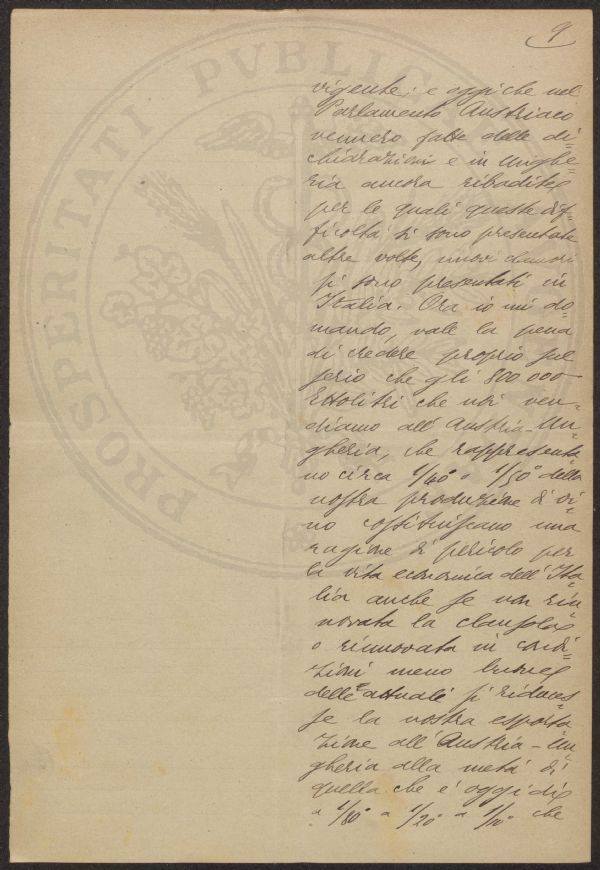 9
PROSPERITATI PVBLICA
vigente: e oggi che nel
Parlamento Austriaco
vennero fatte delle di=
chiarazioni e in Unghe=
ria ancora ribadite
per le quali queste dif=
ficoltà si sono presentate
altre volte, nuovi clamori
si sono presentati in
Italia. Ora io mi do=
mando, vale la pena
di credere proprio sul
serio che gli 800 000
Ettolitri che noi ven=
diamo all'Austria-Un=
gheria, che rappresenta
no circa 1/40° o 1/50° della
nostra produzione di vi=
no costituiscano una
ragione di pericolo per
la vita economica dell'Ita=
lia anche se non rin=
novata la clausola
o rinnovata in condi=
zioni meno buone
delle attuali si riduces=
se la nostra esporta
zione all'Austria-Un=
gheria alla metà di
quella che è oggidì
a 1/80° a 1/20° a 1/10° che